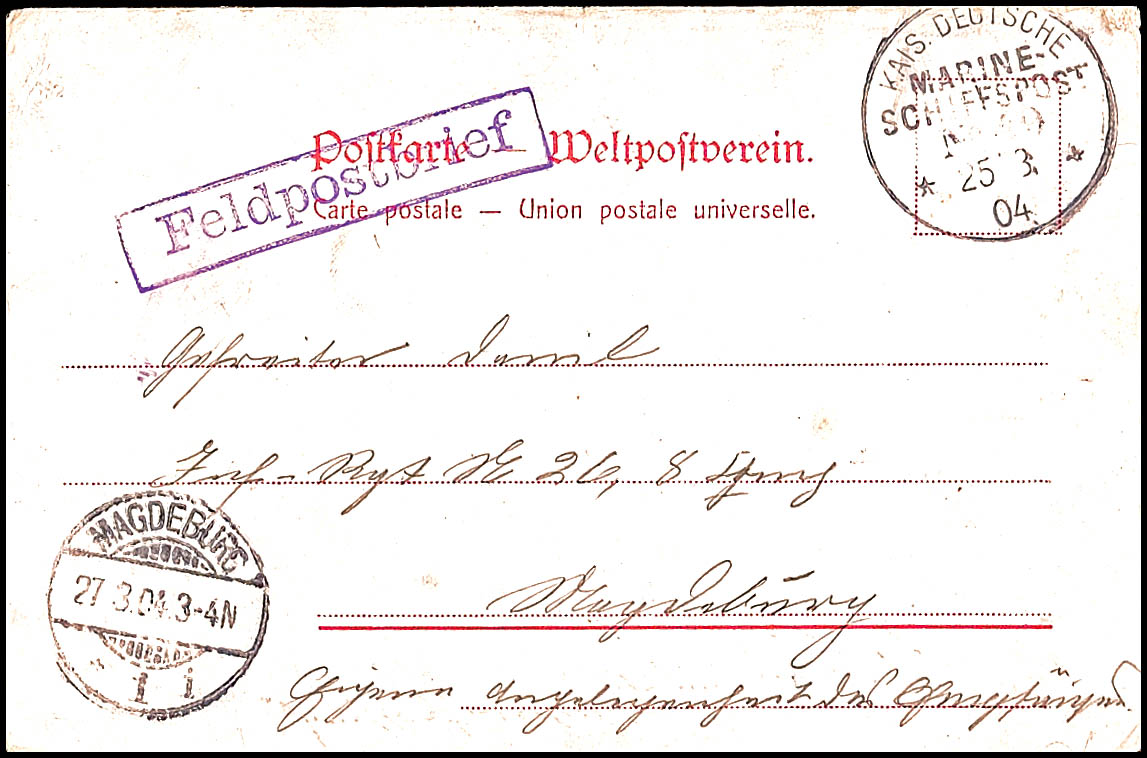 KAIS. DEUTSCHE
MARINE-
SCHIFFSPOST
25 3.
04.
Postkarte — Weltpostverein.
Feldpostbrief
Carte postale — Union postale universelle.
Gefreiter
Inf-Rgt No 26, 8
Magdeburg
MAGDEBURG
27 3.04.3-4N
1 i
Eigene Angelegenheit des Empfängers